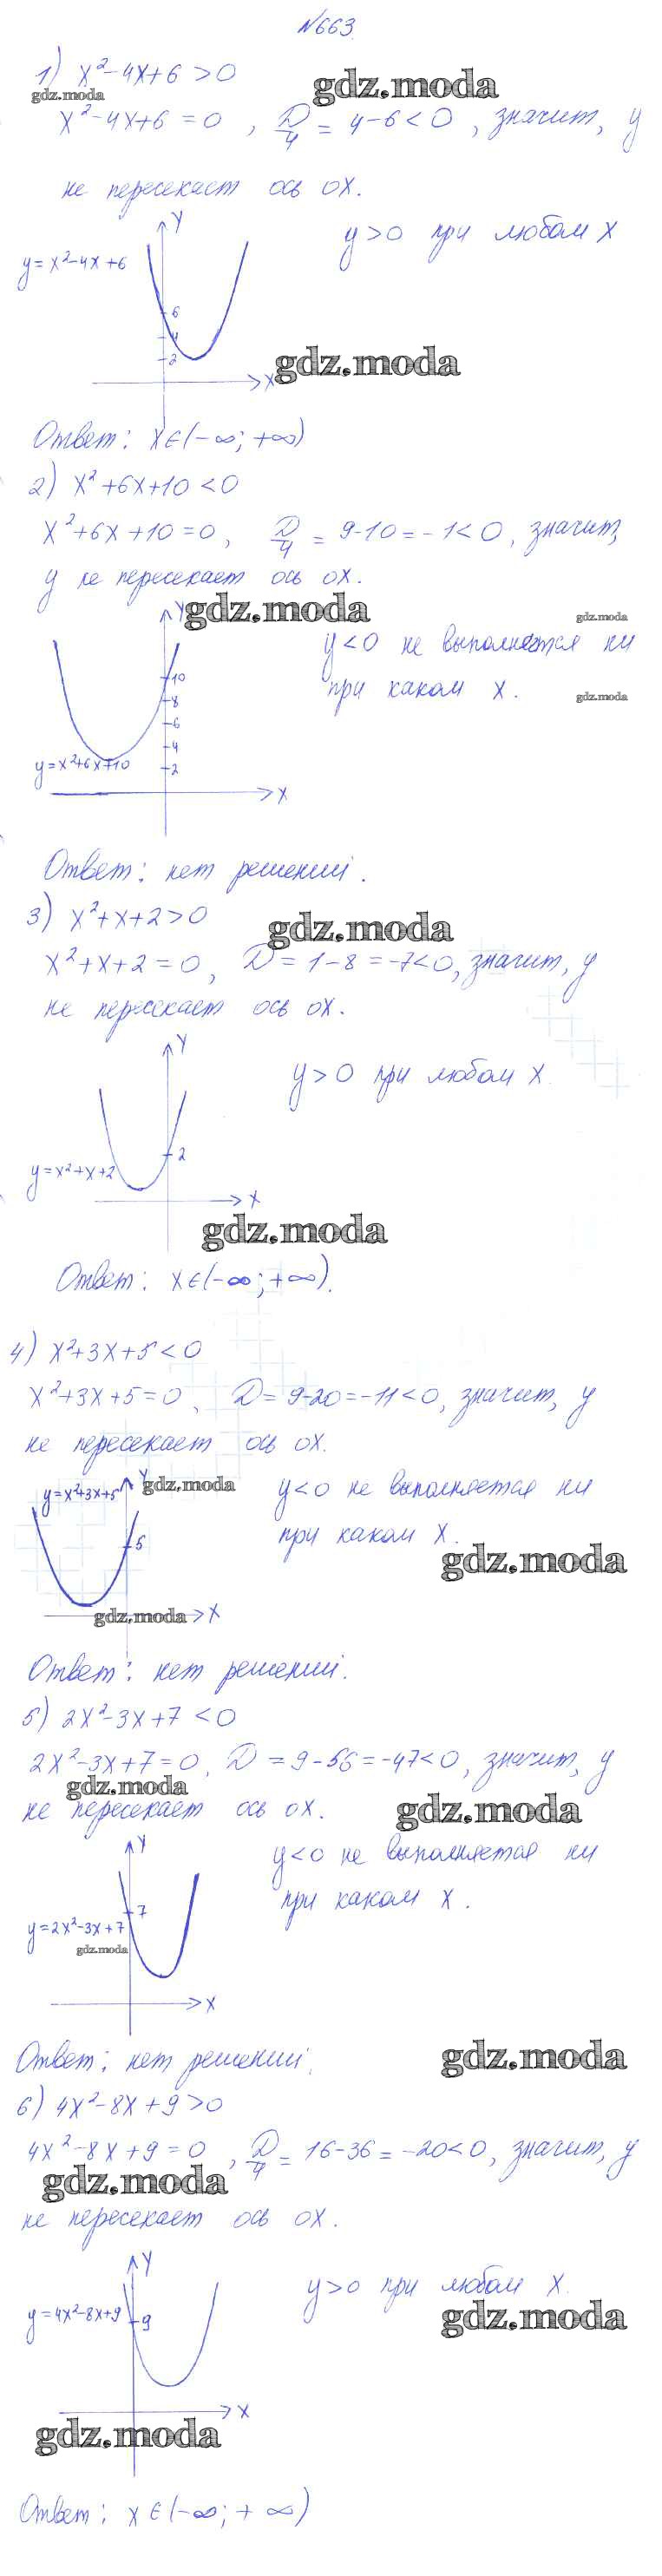 №663.
1) x²-4x+6 >0
gdz.moda
gdz.moda
x²-4x+6 = 0 , D/4 = 4-6<0 , значит, y
не пересекает ось OX.
Y
y>0 при любом x
y = x²-4x+6
6
4
2
gdz.moda
X
Ответ: x∈(-∞; +∞)
2) x²+6x+10 <0
x²+6x+10=0, D/4 = 9-10 = -1<0, значит,
y не пересекает ось OX.
Y
gdz.moda
gdz.moda
y<0 не выполняется ни
при каком x.
gdz.moda
10
8
6
4
2
y=x²+6x+10
X
Ответ: нет решений.
3) x²+x+2>0
gdz.moda
x²+x+2 = 0, D = 1-8 = -7<0, значит, y
не пересекает ось OX.
Y
y > 0 при любом x.
2
y=x²+x+2
X
gdz.moda
Ответ: x∈(-∞; +∞).
4) x²+3x+5<0
x²+3x+5=0, D= 9-20=-11<0, значит, y
не пересекает ось OX.
Y
gdz.moda
y=x²+3x+5
y<0 не выполняется ни
при каком x.
5
gdz.moda
gdz.moda
X
Ответ: нет решений.
5) 2x²-3x+7 <0
2x²-3x+7=0, D = 9-56=-47<0, значит, y
gdz.moda
не пересекает ось OX.
gdz.moda
Y
y<0 не выполняется ни
при каком x.
7
y=2x²-3x+7
gdz.moda
X
Ответ: нет решений.
gdz.moda
6) 4x²-8x+9>0
4x²-8x+9 = 0 , D/4 = 16-36 = -20<0, значит, y
gdz.moda
не пересекает ось OX.
Y
y>0 при любом x.
gdz.moda
y=4x²-8x+9
9
X
gdz.moda
Ответ: x∈(-∞; +∞)